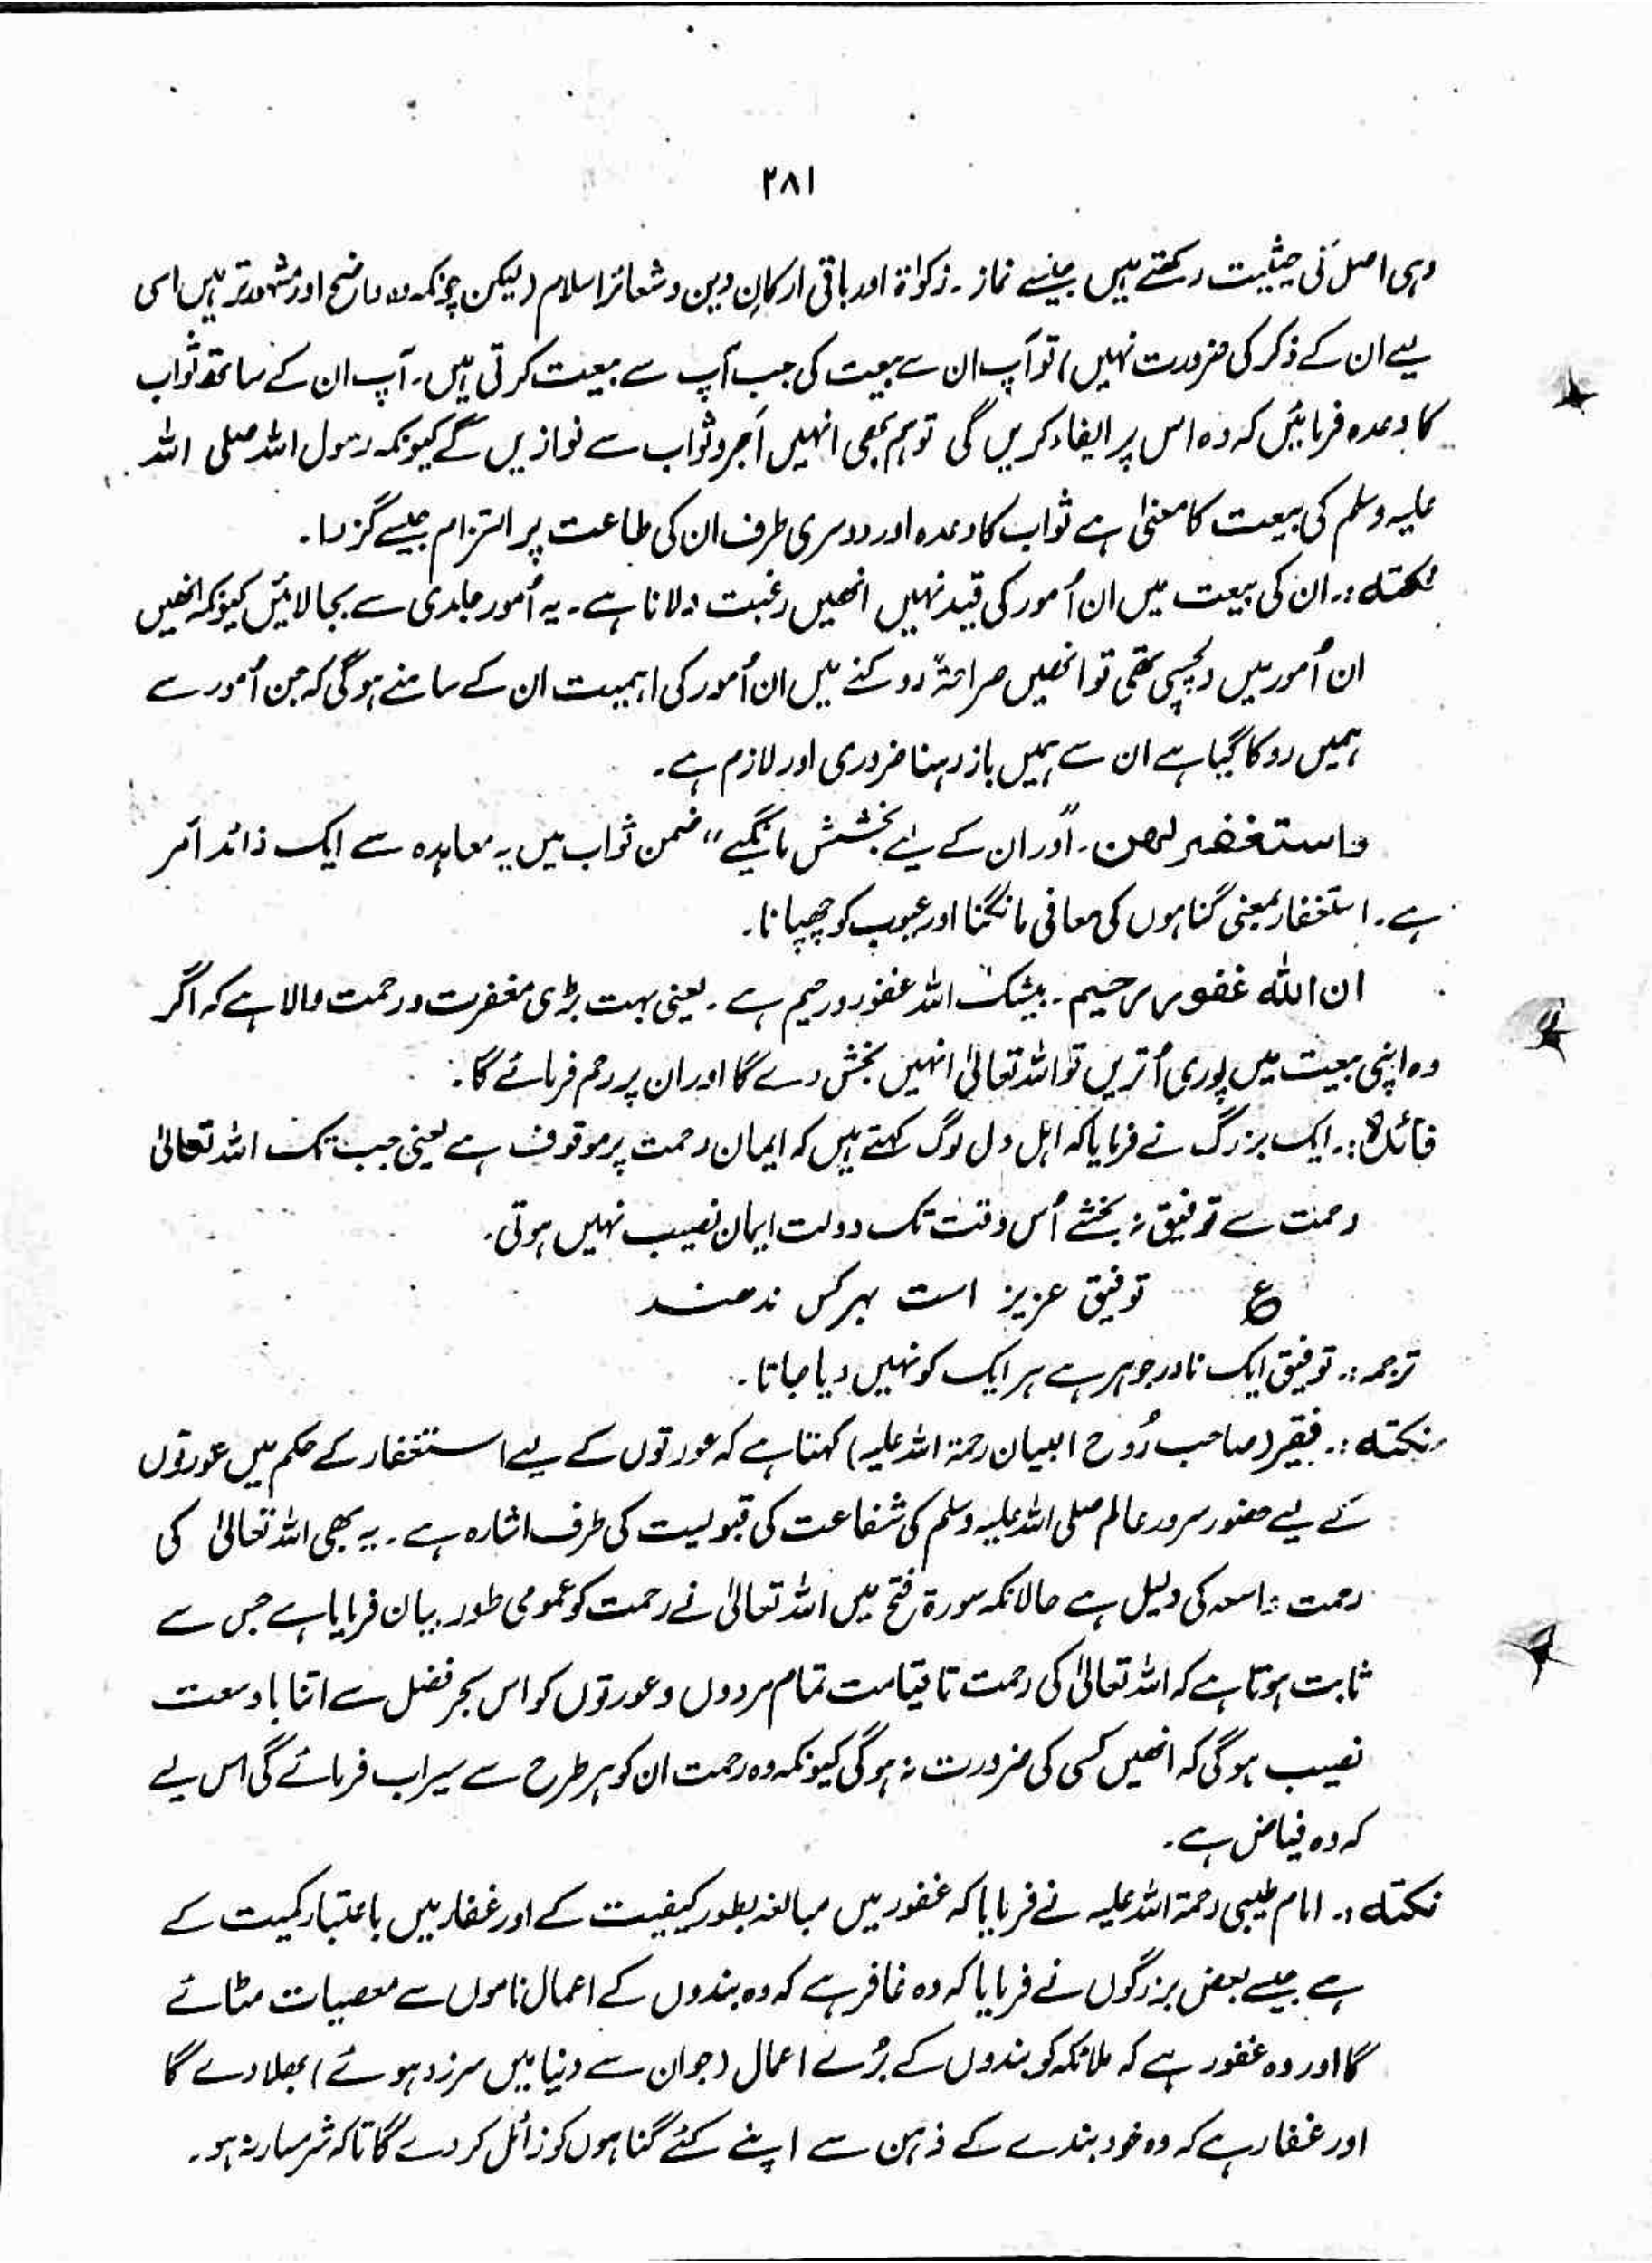 ۲۸۱
وہی اصل کی حیثیت رکھتے ہیں جیسے نماز ۔ زکوٰۃ اور باقی ارکانِ دین و شعائر اسلام (لیکن چونکہ وہ واضح اور مشہور تر ہیں اسی
لیے ان کے ذکر کی ضرورت نہیں) تو آپ ان سے بیعت کی جب آپ سے بیعت کرتی ہیں۔ آپ ان کے ساتھ ثواب
کا وعدہ فرمائیں کہ وہ اس پر ایفاء کریں گی تو ہم بھی انہیں اَجر و ثواب سے نوازیں گے کیونکہ رسول اللہ صلی اللہ
علیہ وسلم کی بیعت کا معنیٰ ہے ثواب کا وعدہ اور دوسری طرف ان کی طاعت پر التزام جیسے گزرا ۔
نکتہ :۔ ان کی بیعت میں ان اُمور کی قید نہیں انھیں رغبت دلانا ہے ۔ یہ اُمور جلدی سے بجا لائیں کیونکہ انھیں
ان اُمور میں دلچسپی تھی تو انھیں صراحۃً روکنے میں ان اُمور کی اہمیت ان کے سامنے ہوگی کہ جن اُمور سے
ہمیں روکا گیا ہے ان سے ہمیں باز رہنا ضروری اور لازم ہے ۔
واستغفر لھن ۔ "اور ان کے لیے بخشش مانگیے" ضمن ثواب میں یہ معاہدہ سے ایک زائد اَمر
ہے ۔ استغفار بمعنی گناہوں کی معافی مانگنا اور عیوب کو چھپانا ۔
ان اللہ غفور رحیم ۔ بیشک اللہ غفور و رحیم ہے ۔ یعنی بہت بڑی مغفرت و رحمت والا ہے کہ اگر
وہ اپنی بیعت میں پوری اُتریں تو اللہ تعالیٰ انہیں بخش دے گا اور ان پر رحم فرمائے گا ۔
فائدہ :۔ ایک بزرگ نے فرمایا کہ اہل دل لوگ کہتے ہیں کہ ایمان رحمت پر موقوف ہے یعنی جب تک اللہ تعالیٰ
رحمت سے توفیق نہ بخشے اُس وقت تک دولت ایمان نصیب نہیں ہوتی ۔
ع توفیق عزیز است بہر کس ندھند
ترجمہ :۔ توفیق ایک نادر جوہر ہے ہر ایک کو نہیں دیا جاتا ۔
نکتہ :۔ فقیر (صاحب رُوح البیان رحمۃ اللہ علیہ) کہتا ہے کہ عورتوں کے لیے استغفار کے حکم میں عورتوں
کے لیے حضور سرور عالم صلی اللہ علیہ وسلم کی شفاعت کی قبولیت کی طرف اشارہ ہے ۔ یہ بھی اللہ تعالیٰ کی
رحمت واسعہ کی دلیل ہے حالانکہ سورۃ فتح میں اللہ تعالیٰ نے رحمت کو عمومی طور بیان فرمایا ہے جس سے
ثابت ہوتا ہے کہ اللہ تعالیٰ کی رحمت تا قیامت تمام مردوں و عورتوں کو اس بحر فضل سے اتنا باوسعت
نصیب ہوگی کہ انھیں کسی کی ضرورت نہ ہوگی کیونکہ وہ رحمت ان کو ہر طرح سے سیراب فرمائے گی اس لیے
کہ وہ فیاض ہے ۔
نکتہ :۔ امام طیبی رحمۃ اللہ علیہ نے فرمایا کہ غفور میں مبالغہ بطور کیفیت کے اور غفار میں باعتبار کمیت کے
ہے جیسے بعض بزرگوں نے فرمایا کہ وہ غافر ہے کہ وہ بندوں کے اعمال ناموں سے معصیات مٹائے
گا اور وہ غفور ہے کہ ملائکہ کو بندوں کے بُرے اعمال (جو ان سے دنیا میں سرزد ہوئے) بھلا دے گا
اور غفار ہے کہ وہ خود بندے کے ذہن سے اپنے کئے گناہوں کو زائل کر دے گا تاکہ شرمسار نہ ہو ۔